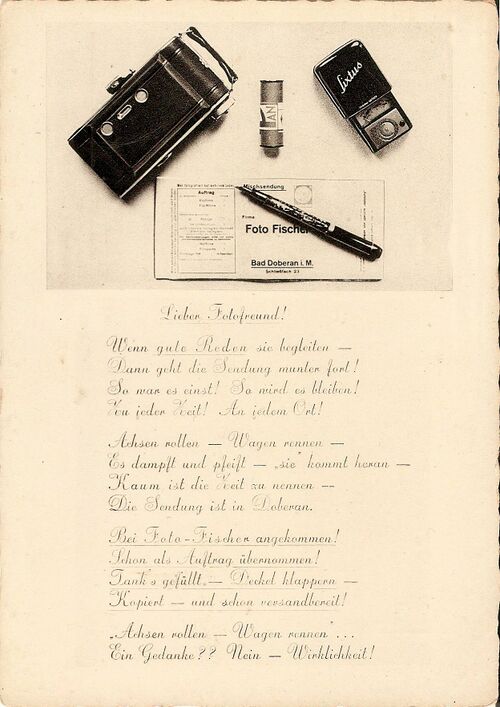 Sixtus
AN
Auftrag
Mischsendung
Firma
Foto Fischer
Bad Doberan i. M.
Schließfach 23
Lieber Fotofreund!
Wenn gute Reden sie begleiten —
Dann geht die Sendung munter fort!
So war es einst! So wird es bleiben!
Zu jeder Zeit! An jedem Ort!
Achsen rollen — Wagen rennen —
Es dampft und pfeift — „sie" kommt heran —
Kaum ist die Zeit zu nennen —
Die Sendung ist in Doberan.
Bei Foto-Fischer angekommen!
Schon als Auftrag übernommen!
Tank's gefüllt — Deckel klappern —
Kopiert — und schon versandbereit!
„Achsen rollen — Wagen rennen"...
Ein Gedanke?? Nein — Wirklichkeit!